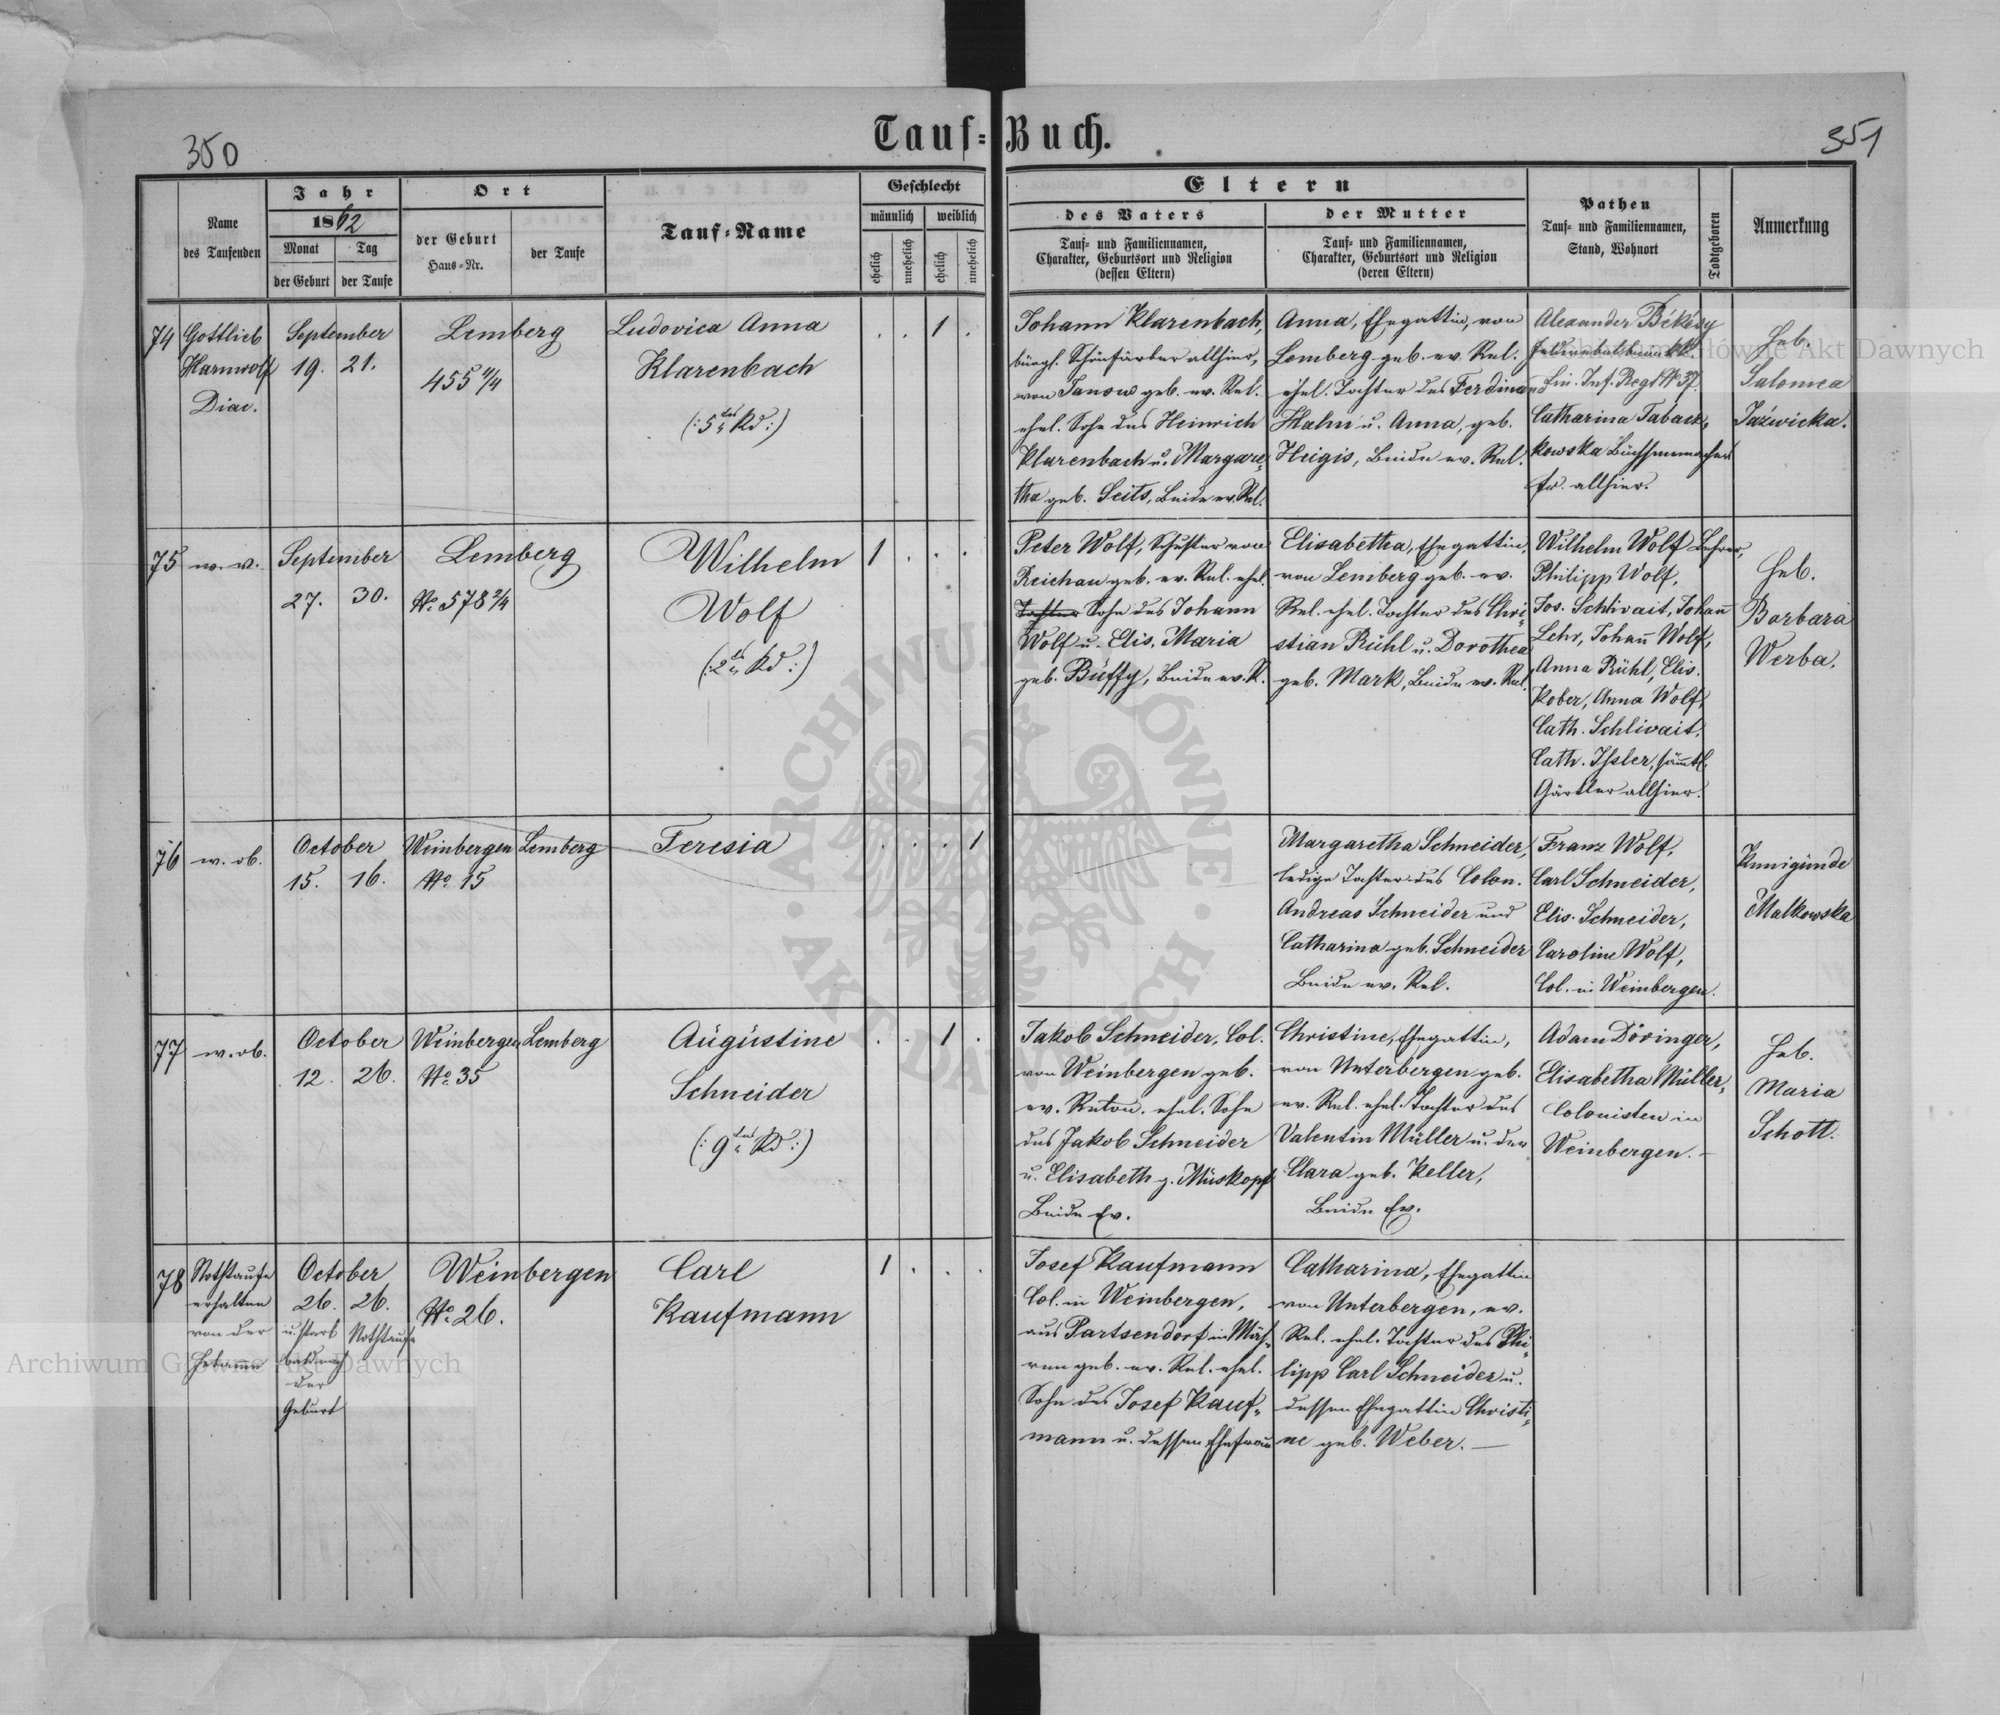 350
Tauf-Buch.
351
Name
des Taufenden
Jahr
1862
Monat
Tag
der Geburt
der Taufe
Ort
der Geburt
Haus-Nr.
der Taufe
Tauf-Name
Geschlecht
männlich
weiblich
ehelich
unehelich
ehelich
unehelich
Eltern
des Vaters
Tauf- und Familiennamen,
Charakter, Geburtsort und Religion
(dessen Eltern)
der Mutter
Tauf- und Familiennamen,
Charakter, Geburtsort und Religion
(deren Eltern)
Pathen
Tauf- und Familiennamen,
Stand, Wohnort
Todtgeboren
Anmerkung
74
Gottlieb
Harnwolf
Diac.
September
19. 21.
Lemberg
455 4/4
Ludovica Anna
Klarenbach
(:5tes Kd:)
. . 1 .
Johann Klarenbach,
bürgl. Schönfärber allhier,
von Janow geb. ev. Rel.
ehel. Sohn des Heinrich
Klarenbach u. Margare-
tha geb. Seits, Beide ev. Rel.
Anna, Ehegattin, von
Lemberg geb. ev. Rel.
ehel. Tochter des Ferdinand
Hahn u. Anna, geb.
Heigis, Beide ev. Rel.
Alexander Békésy
Lin. Inf. Regt No 37.
Catharina Tabacz-
kowska Büchsenmachers
fr. allhier.
Heb.
Salomea
Jaźwicka.
75
w. v.
September
27. 30.
Lemberg
No. 578 2/4
Wilhelm
Wolf
(:2tes Kd:)
1 . . .
Peter Wolf, Schuster von
Reichau geb. ev. Rel. ehel.
Tochter Sohn des Johann
Wolf u. Elis. Maria
geb. Büffy, Beide ev. R.
Elisabetha, Ehegattin,
von Lemberg geb. ev.
Rel. ehel. Tochter des Chri-
stian Rühl u. Dorothea
geb. Mark, Beide ev. Rel.
Wilhelm Wolf Lehrer,
Philipp Wolf,
Jos. Schlivait, Johann
Lehr, Johann Wolf,
Anna Rühl, Elis.
Kober, Anna Wolf,
Cath. Schlivait,
Cath. Issler, sämtl.
Gärtler allhier.
Heb.
Barbara
Werba.
76
w. ob.
October
15. 16.
Weinbergen
No. 15
Lemberg
Teresia
. . . 1
Margaretha Schneider,
ledige Tochter des Colon.
Andreas Schneider und
Catharina geb. Schneider
Beide ev. Rel.
Franz Wolf,
Carl Schneider,
Elis. Schneider,
Caroline Wolf,
Col. in Weinbergen.
Kunigunde
Malkowska
77
w. ob.
October
12. 26.
Weinbergen
No. 35
Lemberg
Augustine
Schneider
(:9tes Kd:)
. . 1 .
Jakob Schneider, Col.
von Weinbergen geb.
ev. ehel. Sohn
des Jakob Schneider
u. Elisabeth g. Müskopf
Beide Ev.
Christine, Ehegattin,
von Unterbergen geb.
ev. Rel. ehel. Tochter des
Valentin Müller u. der
Clara geb. Keller,
Beide Ev.
Adam Döringer,
Elisabetha Müller,
Colonisten in
Weinbergen.
Heb.
Maria
Schott.
78
Nothtaufe
erhalten
von der
Hebamme
October
26. 26.
u. starb
bald nach
der
Geburt
Nothtaufe
Weinbergen
No. 26.
Carl
Kaufmann
1 . . .
Josef Kaufmann
Col. in Weinbergen,
aus Partsendorf in Mäh-
ren geb. ev. Rel. ehel.
Sohn des Josef Kauf-
mann u. dessen Ehefrau
Catharina, Ehegattin
von Unterbergen, ev.
Rel. ehel. Tochter des Phi-
lipp Carl Schneider u.
dessen Ehegattin Christi-
ne geb. Weber.
Archiwum Główne Akt Dawnych
Archiwum Główne Akt Dawnych
ARCHIWUM GŁÓWNE AKT DAWNYCH